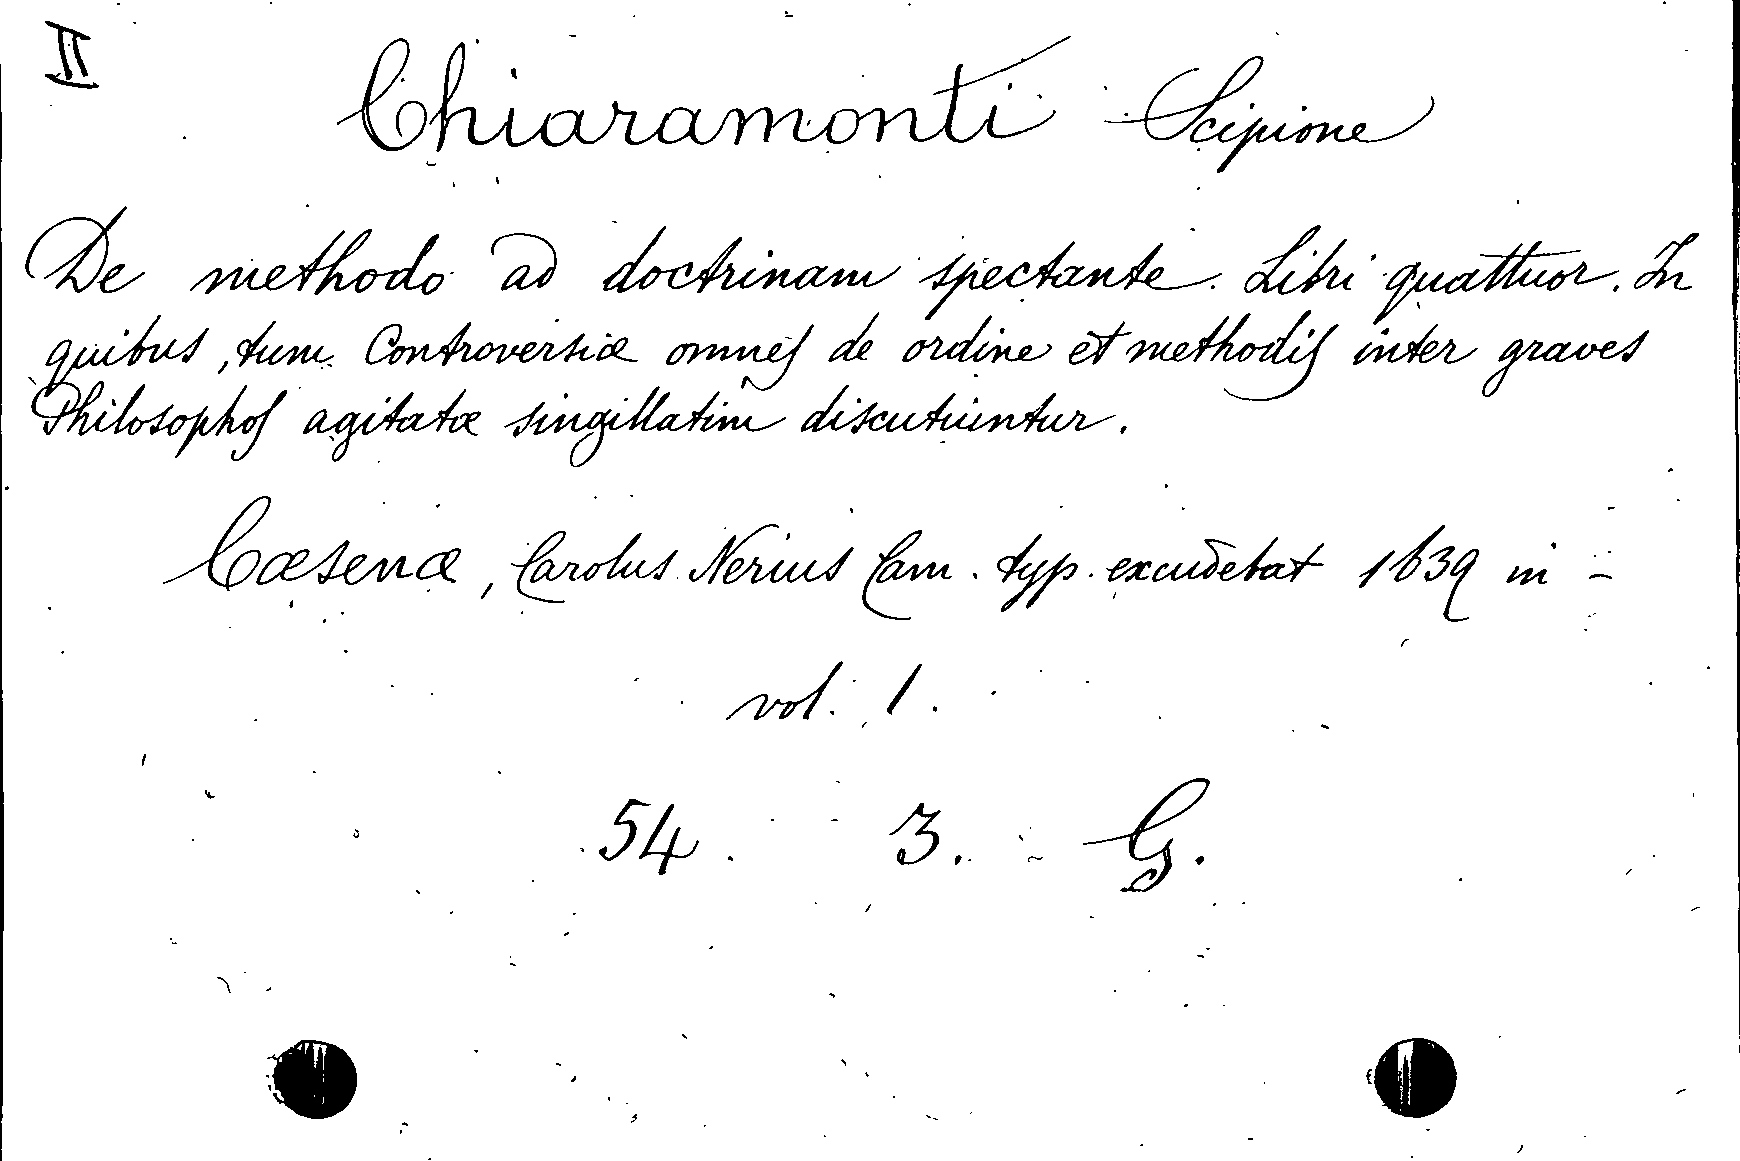 II
Chiaramonti Scipione
De methodo ad doctrinam spectante. Libri quattuor. In
quibus, tum Controversiæ omnes de ordine et methodis inter graves
Philosophos agitatæ singillatim discutiuntur.
Cæsenæ, Carolus Nerius Cam. typ. excudebat 1639 in -
vol. 1.
54. 3. G.